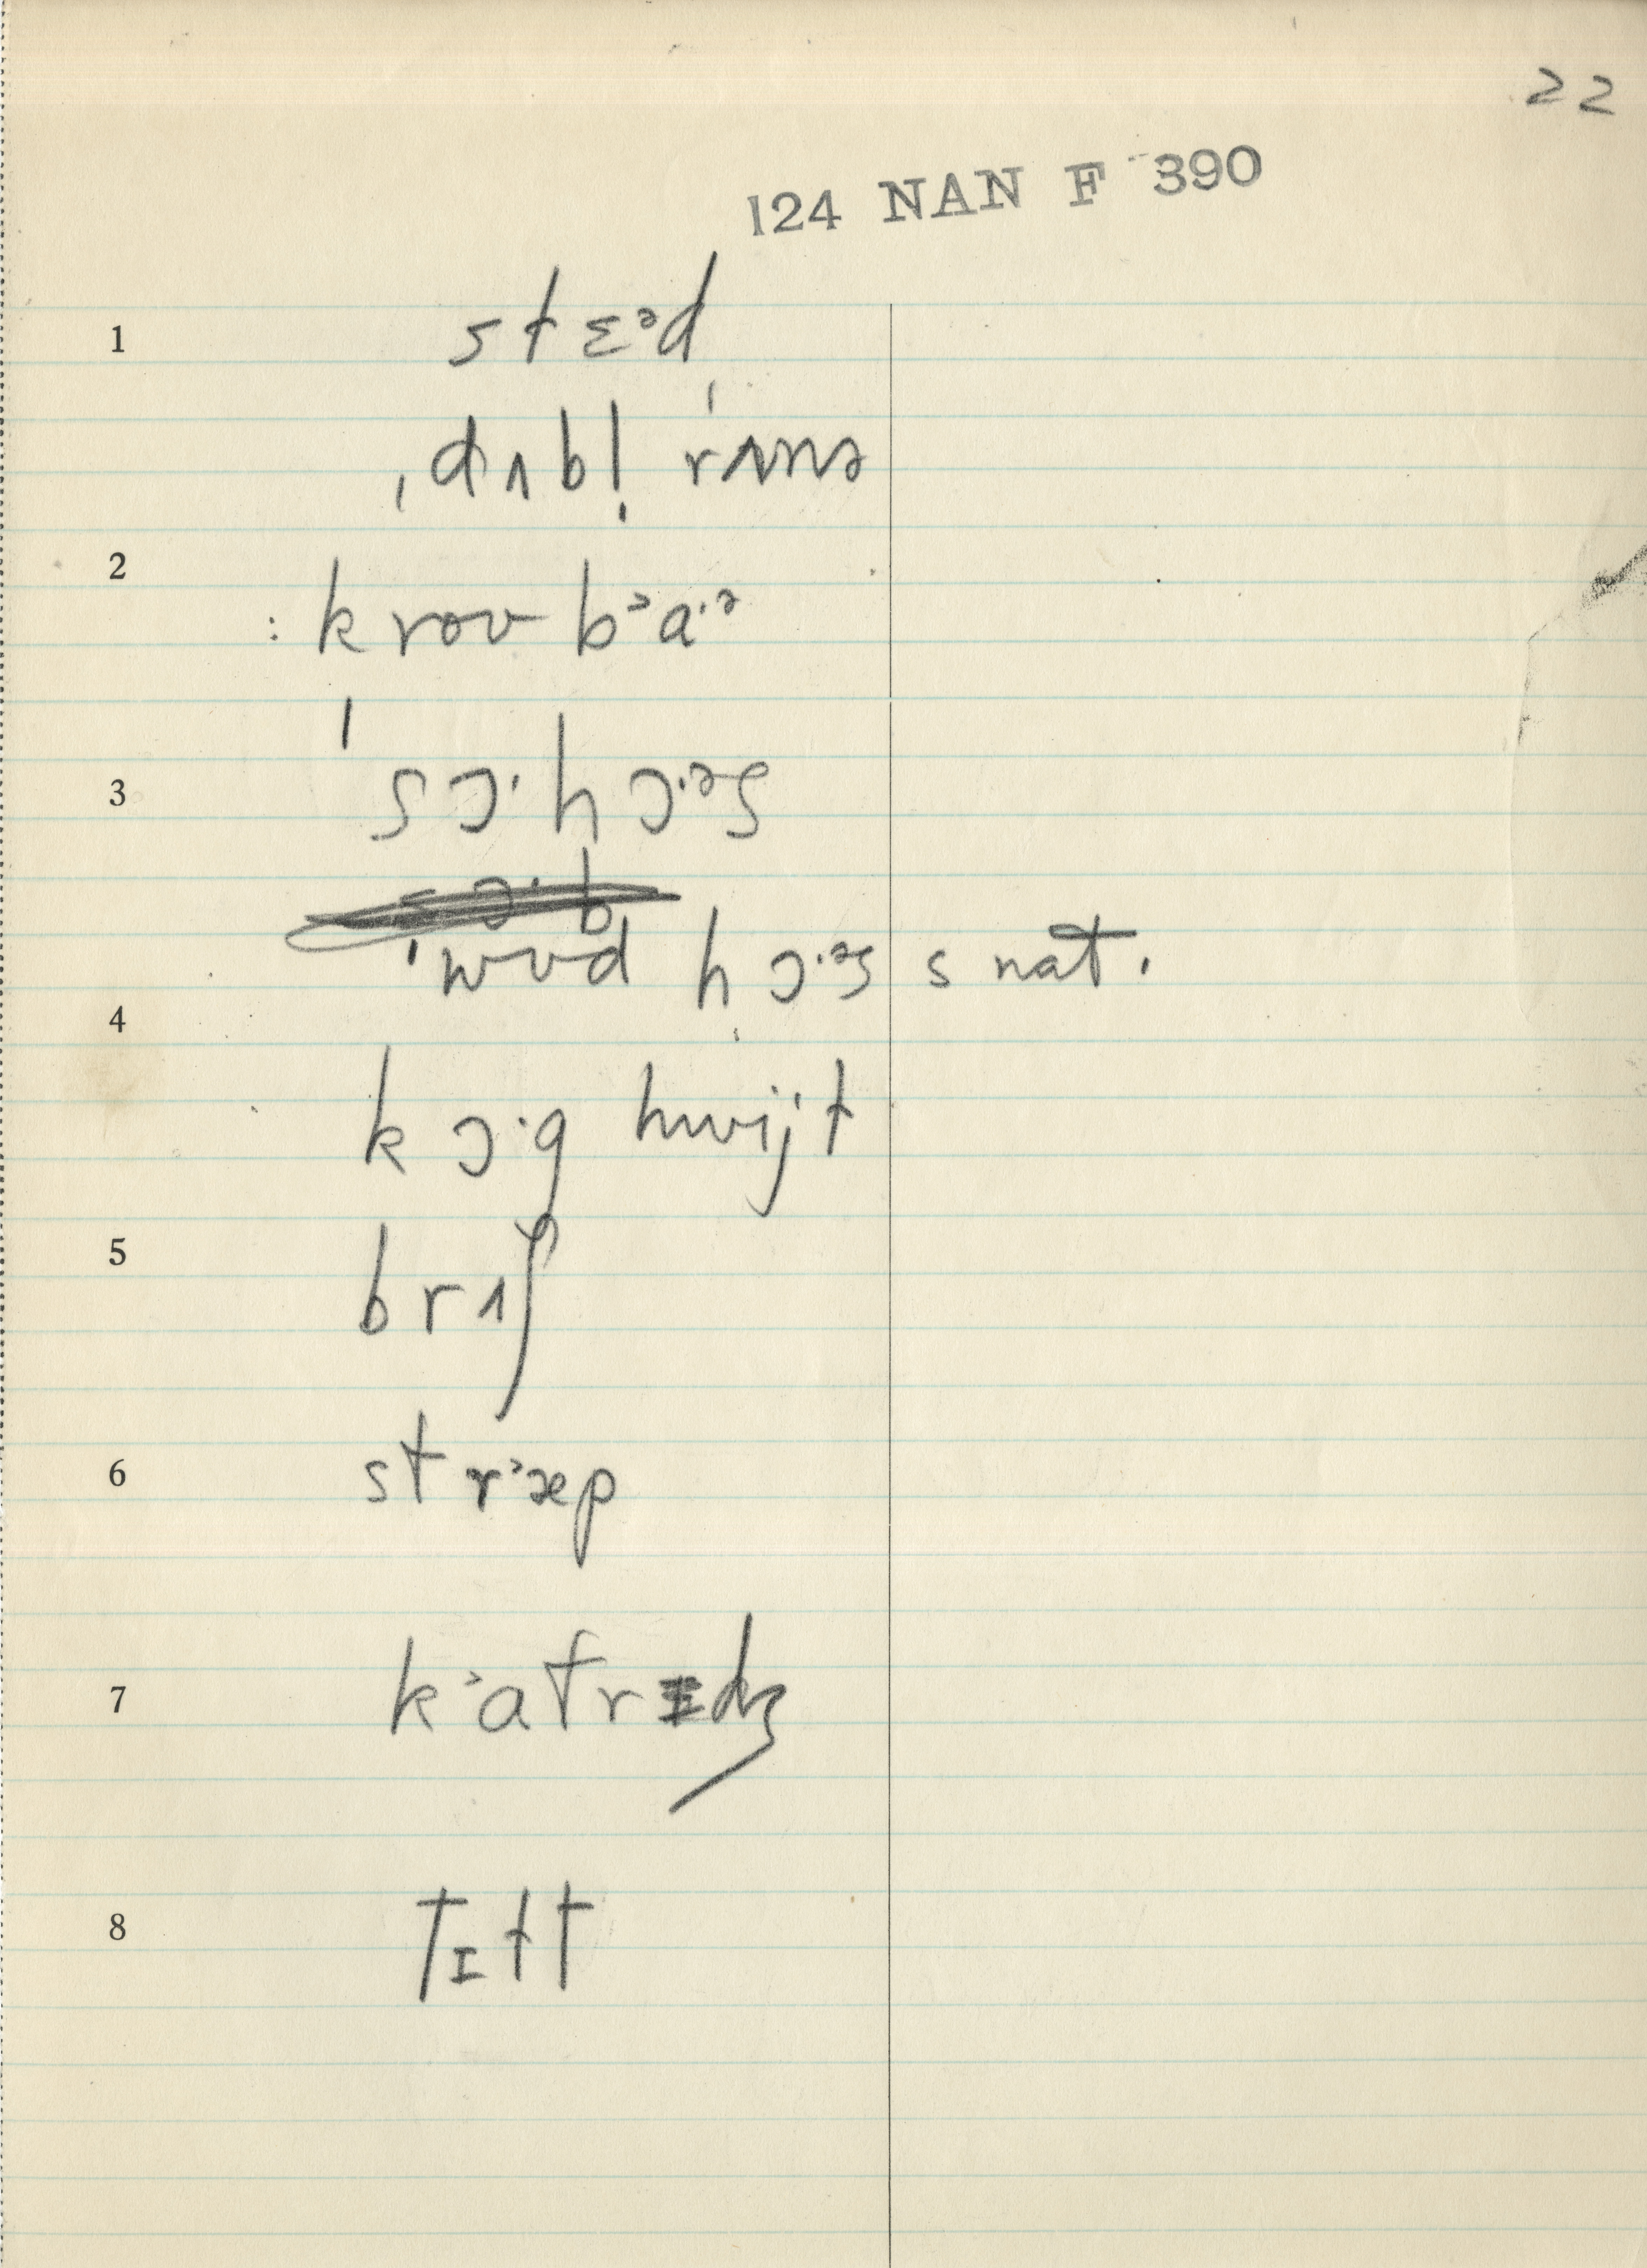 22
124 NAN F 390
1
stɛᵊd
ˌdʌbl̩ ˈrʌnə
2
: krov bᵓa·ᵊ
3
ˈsɔ·hɔ·ᵊs
ˈwud hɔ·ᵊs s nat.
4
kɔ·g hwijt
5
brʌʃ
6
strᵓæp
7
kᵓatrɪdʒ
8
tɪlt